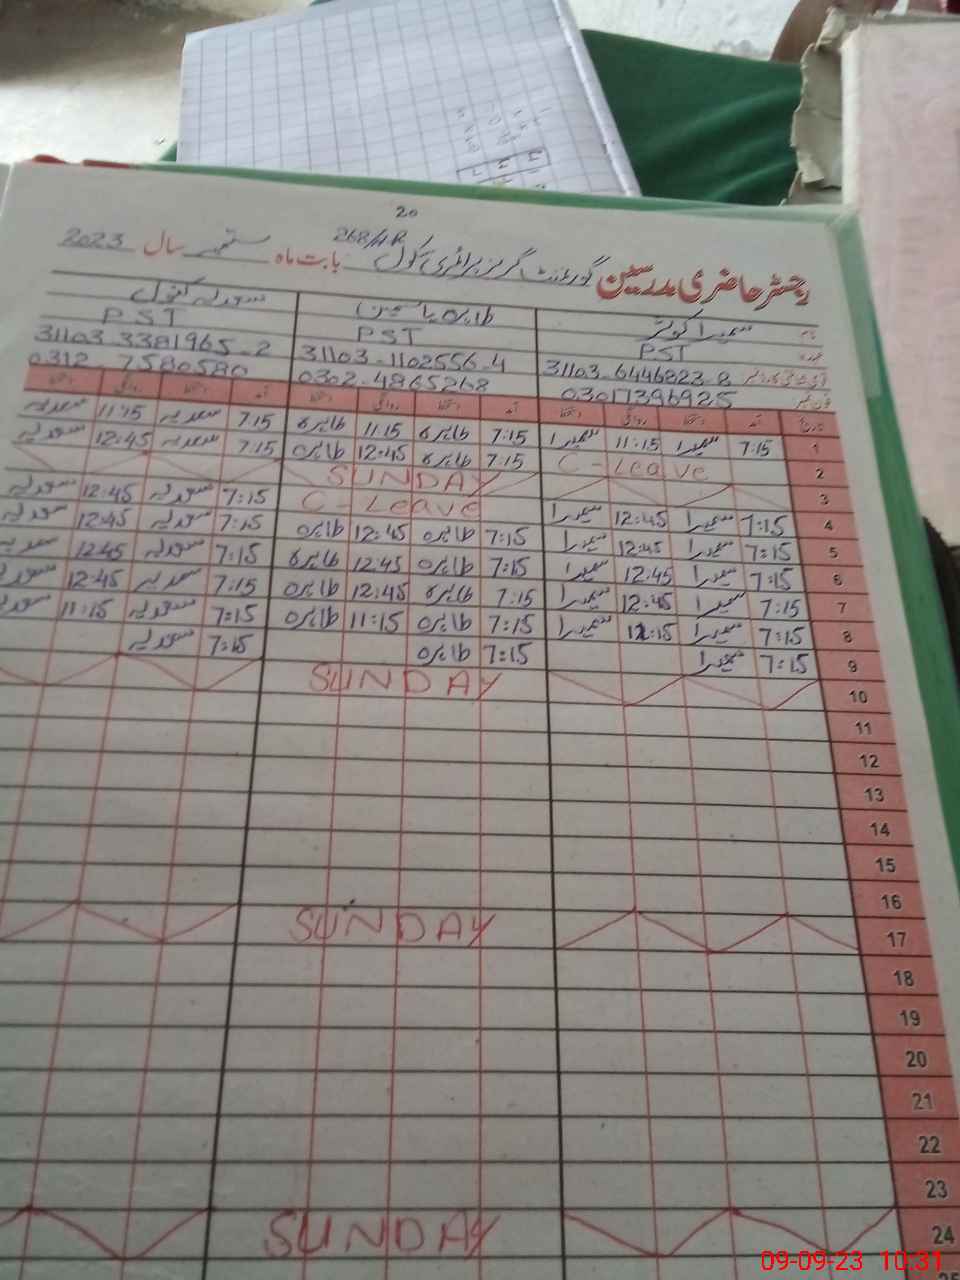 20
رجسٹر حاضری مدرسین گورنمنٹ گرلز پرائمری سکول 268/4R بابت ماہ ستمبر سال 2023
نام سمیرا کوثر طاہرہ یاسمین سعدیہ کنول
عہدہ PST PST PST
شناختی کارڈ نمبر 31103-6446823-8 31103-1102556-4 31103-3381965-2
فون نمبر 03017396925 0302-4865268 0312-7580580
تاریخ آمد دستخط روانگی دستخط آمد دستخط روانگی دستخط آمد دستخط روانگی دستخط
1 7:15 سمیرا 11:15 سمیرا 7:15 طاہرہ 11:15 طاہرہ 7:15 سعدیہ 11:15 سعدیہ
2 C-Leave 7:15 طاہرہ 12:45 طاہرہ 7:15 سعدیہ 12:45 سعدیہ
3 SUNDAY
4 7:15 سمیرا 12:45 سمیرا C-Leave 7:15 سعدیہ 12:45 سعدیہ
5 7:15 سمیرا 12:45 سمیرا 7:15 طاہرہ 12:45 طاہرہ 7:15 سعدیہ 12:45 سعدیہ
6 7:15 سمیرا 12:45 سمیرا 7:15 طاہرہ 12:45 طاہرہ 7:15 سعدیہ 12:45 سعدیہ
7 7:15 سمیرا 12:45 سمیرا 7:15 طاہرہ 12:45 طاہرہ 7:15 سعدیہ 12:45 سعدیہ
8 7:15 سمیرا 11:15 سمیرا 7:15 طاہرہ 11:15 طاہرہ 7:15 سعدیہ 11:15 سعدیہ
9 7:15 سمیرا 7:15 طاہرہ 7:15 سعدیہ
10 SUNDAY
11
12
13
14
15
16
17 SUNDAY
18
19
20
21
22
23
24 SUNDAY
25
09-09-23 10:31